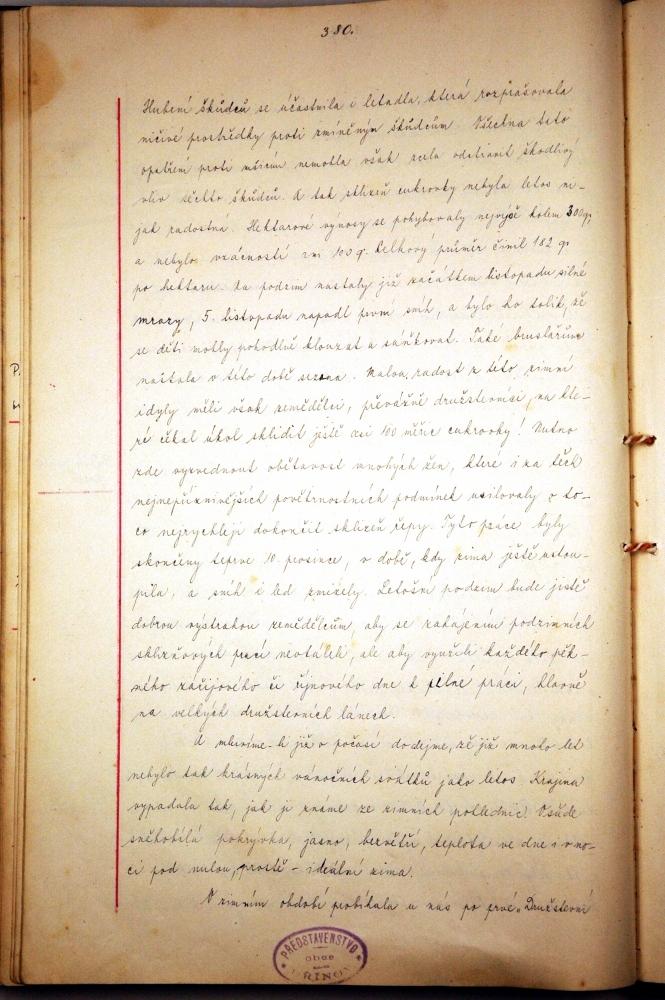 380.
Hubení škůdců se účastnila i letadla, která rozprašovala
ničivé prostředky proti zmíněným škůdcům. Všechna tato
opatření proti mšicím nemohla však zcela odstranit škodlivý
vliv těchto škůdců. A tak sklizeň cukrovky nebyla letos ni-
jak radostná. Hektarové výnosy se pohybovaly nejvýše kolem 300 q,
a nebylo vzácností ani 100 q. Celkový průměr činil 182 q
po hektaru. Na podzim nastaly již začátkem listopadu silné
mrazy, 5. listopadu napadl první sníh, a bylo ho tolik, že
se děti mohly pohodlně klouzat a sáňkovat. Také bruslařům
nastala v této době sezona. Malou radost z této zimní
idyly měli však zemědělci, převážně družstevníci, na kte-
ré čekal úkol sklidit ještě asi 400 měřic cukrovky! Nutno
zde vyzvednout obětavost mnohých žen, které i za těch
nejnepříznivějších povětrnostních podmínek usilovaly o to-
co nejrychleji dokončit sklizeň řepy. Tyto práce byly
skončeny teprve 10. prosince, v době, kdy zima ještě ustou-
pila, a sníh i led zmizely. Letošní podzim bude jistě
dobrou výstrahou zemědělcům, aby se zahájením podzimních
sklizňových prací neotáleli, ale aby využili každého pěk-
ného zářijového či říjnového dne k pilné práci, hlavně
na velkých družstevních lánech.
A mluvíme-li již o počasí dodejme, že již mnoho let
nebylo tak krásných vánočních svátků jako letos. Krajina
vypadala tak, jak ji známe ze zimních pohlednic. Všude
sněhobílá pokrývka, jasno, bezvětří, teplota ve dne i v no-
ci pod nulou, prostě - ideální zima.
V zimním období probíhala u nás po prvé „Družstevní
PŘEDSTAVENSTVO
obce